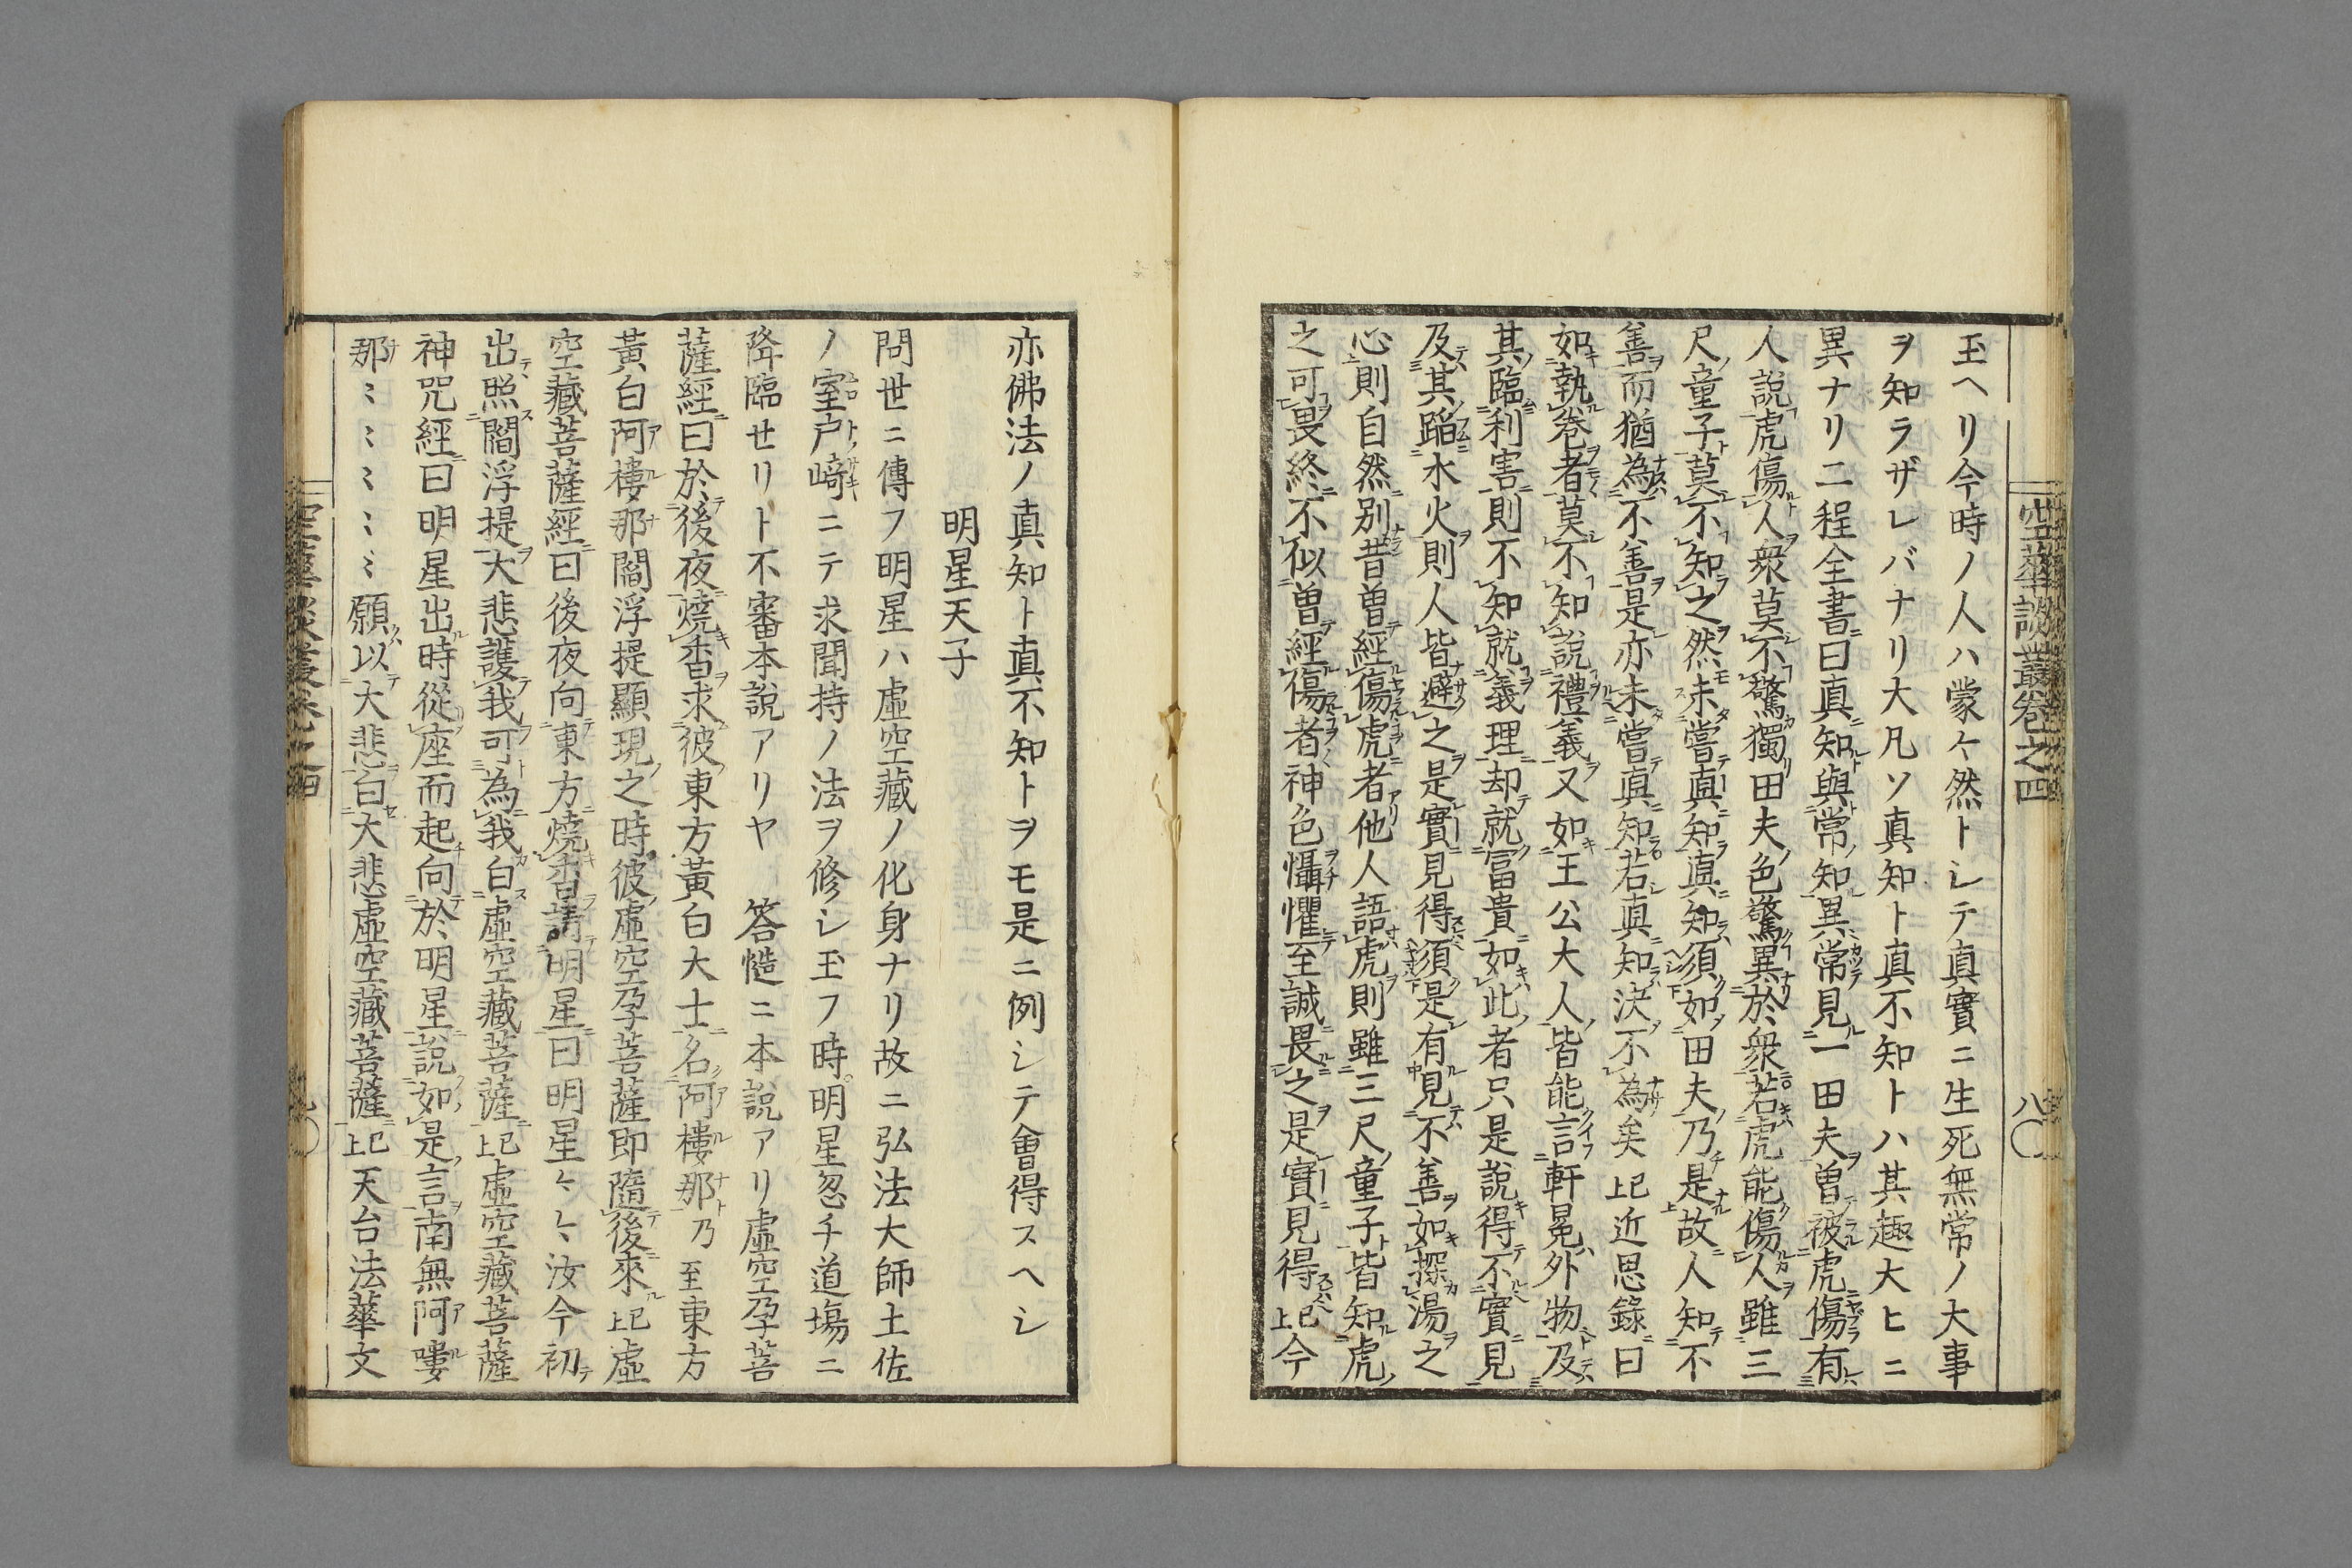 空華談叢卷之四
八〇
玉ヘリ今時ノ人ハ蒙ケ然トレテ真實ニ生死無常ノ大事
ヲ知ラザレバナリ大凡ソ真知ト真不知トハ其趣大ヒニ
異ナリ二程全書曰真知與常知異常見一田夫曽被虎傷有
人說虎傷人衆莫不驚獨田夫色驚異於衆若虎能傷人雖三
尺童子莫不知之然未嘗真知真知須如田夫乃是故人知不
善而猶為不善是亦未嘗真知若真知決不為矣上已近思錄曰
如執卷者莫不知說禮義又如王公大人皆能言軒冕外物及
其臨利害則不知就義理却就冨貴如此者只是說得不實見
及其蹈水火則人皆避之是實見得須是有見不善如探湯之
心則自然別昔曽經傷虎者他人語虎則雖三尺童子皆知虎
之可畏終不似曽經傷者神色懾懼至誠畏之是實見得上已今
亦佛法ノ真知ト真不知トヲモ是ニ例レテ會得スヘレ
明星天子
問世ニ傳フ明星ハ虛空藏ノ化身ナリ故ニ弘法大師土佐
ノ室户﨑ニテ求聞持ノ法ヲ修レ玉フ時明星忽チ道場ニ
降臨セリト不審本說アリヤ 答慥ニ本說アリ虛空孕菩
薩經曰於後夜燒香求彼東方黃白大士名阿樓那乃至東方
黃白阿樓那閻浮提顯現之時彼虛空孕菩薩即隨後來上已虛
空藏菩薩經曰後夜向東方燒香請明星曰明星〻〻汝今初
出照閻浮提大悲護我可為我白虛空藏菩薩上已虛空藏菩薩
神咒經曰明星出時從座而起向於明星說如是言南無阿嘍
那〻〻〻〻〻願以大悲白大悲虛空藏菩薩上已天台法華文